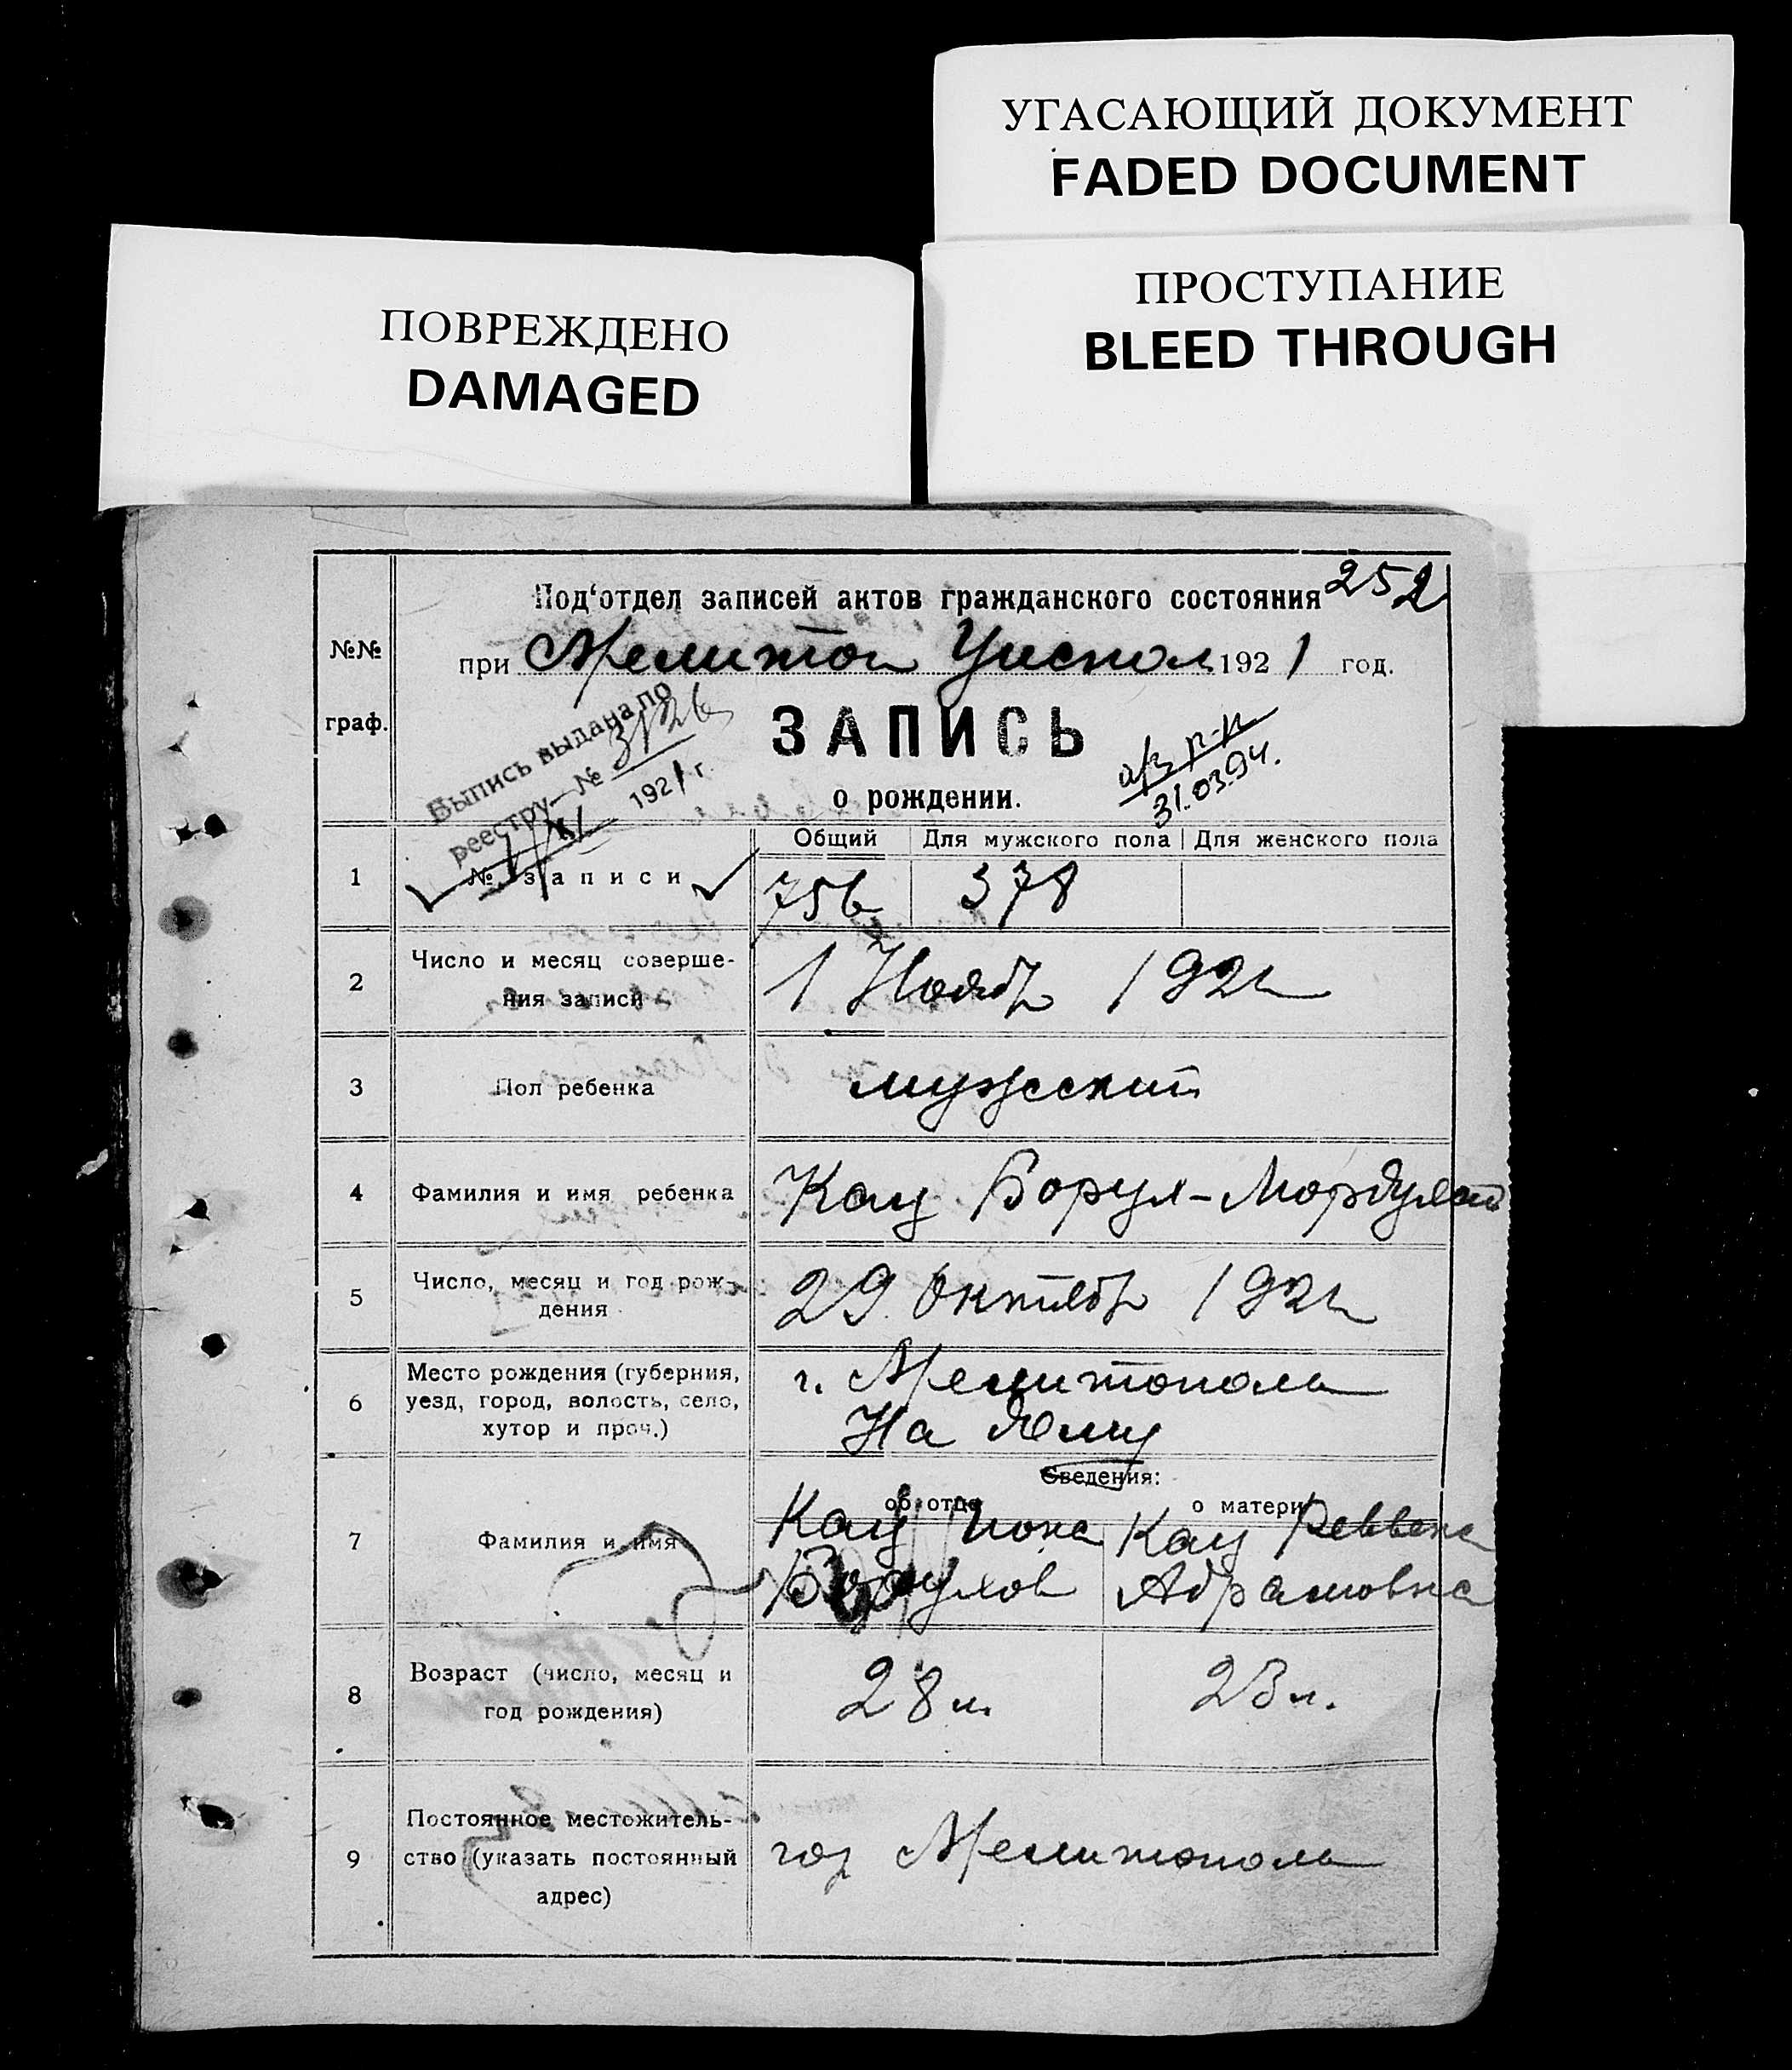 УГАСАЮЩИЙ ДОКУМЕНТ
FADED DOCUMENT
ПРОСТУПАНИЕ
BLEED THROUGH
ПОВРЕЖДЕНО
DAMAGED
252
Под‘отдел записей актов гражданского состояния
№№
граф.
при Мелитоп Уиспол 1921 год.
Выпись выдана по
реестру № 3126
1921 г.
ЗАПИСЬ
о рождении.
31.03.94.
Общий Для мужского пола Для женского пола
1 № записи 756 378
2 Число и месяц соверше-
ния записи
1 Нояб 1921
3 Пол ребенка мужеский
4 Фамилия и имя ребенка Кац Борух-Мордухай
5 Число, месяц и год рож-
дения
29 Октяб 1921
6 Место рождения (губерния,
уезд, город, волость, село,
хутор и проч.)
г. Мелитополь
На дому
Сведения:
об отце о матери
7 Фамилия и имя
Кац Иона Кац Реввека
Борухов Абрамовна
8 Возраст (число, месяц и
год рождения)
28 л. 23 л.
9 Постоянное местожитель-
ство (указать постоянный
адрес)
гор Мелитополь